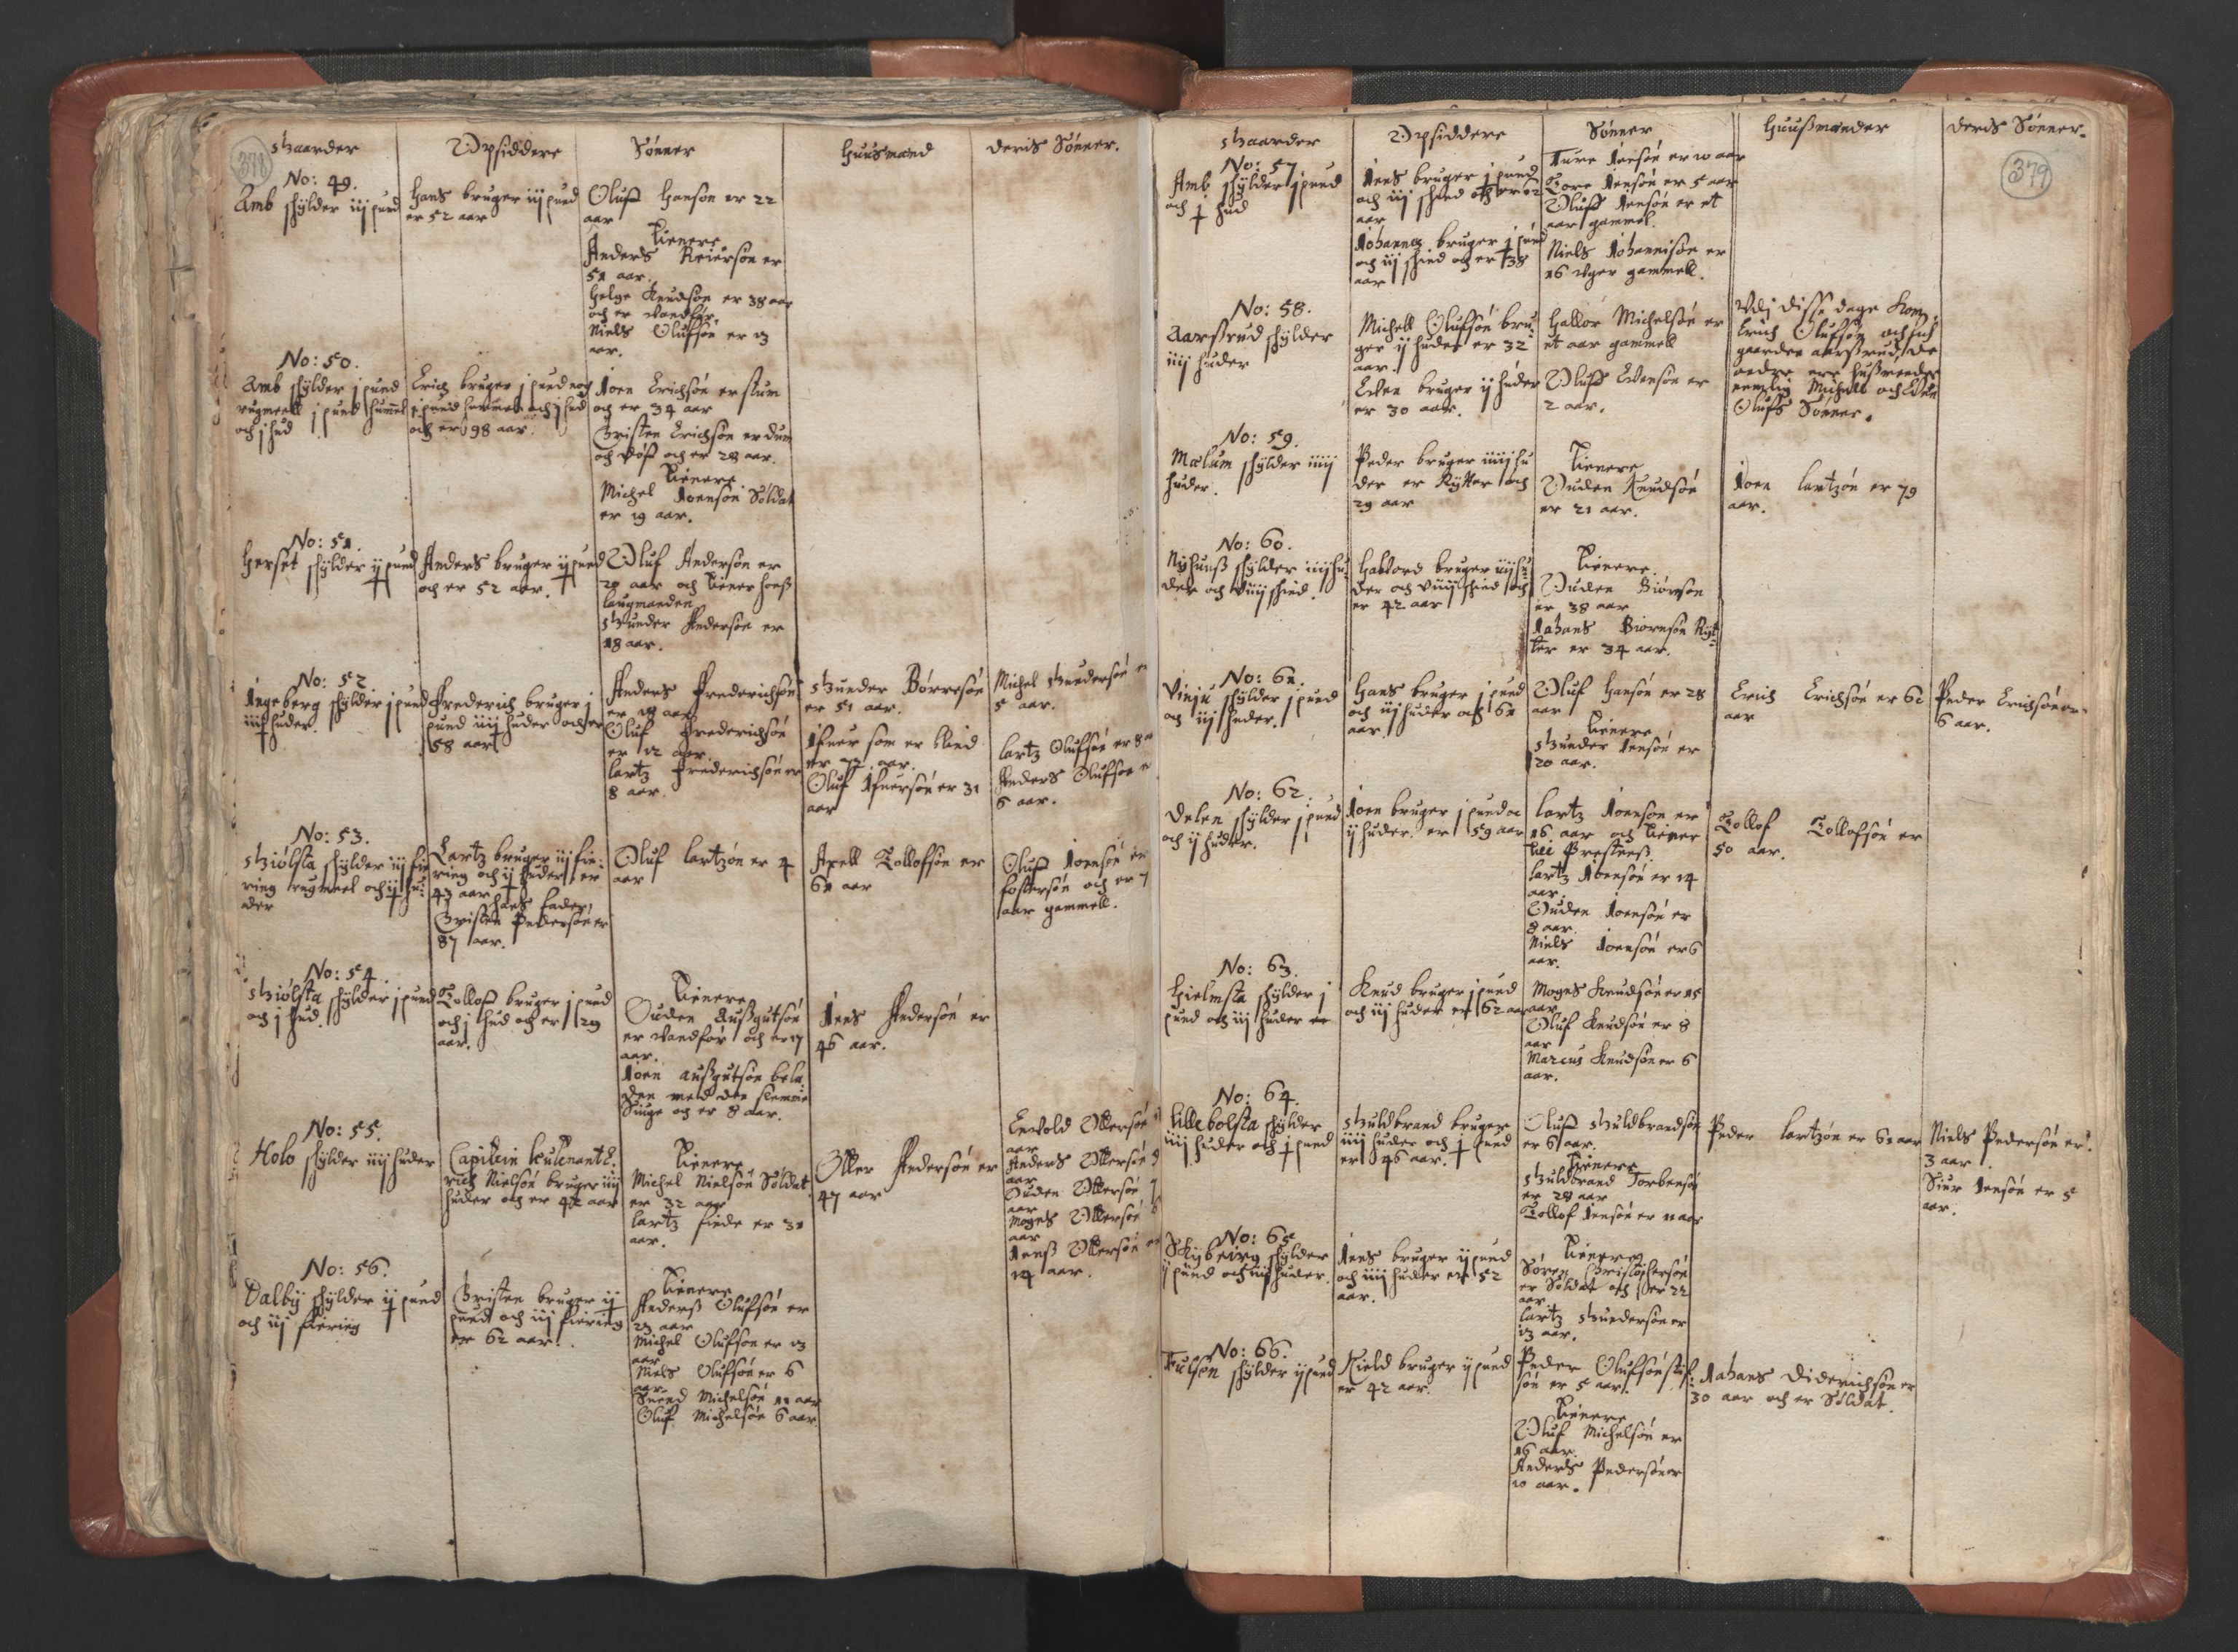 378
Gaarder
Opsiddere
Sønner
Huusmænd
Deris Sønner.
No: 49.
Amb schylder iij pund
Hans bruger iij pund
er 52 aar
Oluff Hanson er 22
aar
Tienere
Anders Reierson er
51 aar.
Helge Knudsøn er 38 aar
och er vandfør.
Niels Olufsøn er 13
aar.
No: 50.
Amb schylder j pund
rugmeell j pund hummel
och j hud
Erich bruger j pund
j pund hummel och j hud
och er 98 aar.
Joen Erichsøn er stum
och er 34 aar
Christen Erichsøn er dum
och døff och er 28 aar.
Tienere
Michel Joensøn Soldat
er 19 aar.
No: 51.
Herset schylder ij pund
Anders bruger ij pund
och er 52 aar.
Oluf Anderson er
20 aar och tiener hoeß
laugmanden
Gunder Andersøn er
18 aar.
No: 52
Ingeberg schylder j pund
iiij huder.
Frederich bruger j
pund iiij huder och er
58 aar
Anders Frederichsøn
er 18 aar
Oluf Frederichsøn
er 12 aar
Lartz Frederichsøn er
8 aar.
Gunder Børresøn
er 51 aar.
Ifuer som er blind
er 72 aar.
Oluf Ifuersøn er 31
aar
Michel Gundersøn er
5 aar.
Lartz Olufsøn er 8
Anders Olufsøn
6 aar.
No: 53.
Giølsta schylder iij fie
ring rugmeel och ij hu:
der
Lartz bruger iij fie:
ring och ij huder er
43 aar hans fader
Christen Pedersøn er
87 aar.
Oluf Lartzøn er 4
aar
Axell Tollofsøn er
61 aar
Oluff Joensøn er
fostersøn och er 7
aar gammell.
No: 54.
Giølsta schylder j pund
och j hud.
Tolloff bruger j pund
och j hud och er 29
aar.
Tienere
Ouden Außgutsøn
er vandfør och er 17
aar.
Joen außgutsøn bela
den med den slemme
Siuge och er 8 aar.
Jens Andersøn er
46 aar.
No: 55.
Holo schylder iiij huder
Capitein leutenant E:
rich Nielsøn bruger iiij
huder och er 42 aar
Tienere
Michel Nielsøn Soldat
er 32 aar
Lartz Finde er 31
aar.
Oller Andersøn er
47 aar
Evold Ollersøn
aar
Anders Ollersøn 9
aar
Ouden Ollersøn 7
aar
Mogns Ollersøn
aar
Jenß Ollersøn er
14 aar.
No: 56.
Dalby schylder ij pund
och iij fiering
Christen bruger ij
pund och iij fiering
er 62 aar.
Tienere
Anderß Olufsøn er
23 aar
Michel Olufsøn er 13
aar
Niels Olufsøn er 6
aar.
Suend Michelsøn 11 aar
Oluf Michelsøn 6 aar
379
Gaarder
Opsiddere
Sønner
Huußmænder
Deris Sønner.
No: 57
Amb schylder j pund
och j hud
Jens bruger j pund
och iij schind och er 62
aar
Johannes bruger j pund
och iij schind och er 38
aar
Ture Jensøn er 10 aar
Tore Jensøn er 5 aar
Oluff Jensøn er et
aar gammel.
Niels Johannisøn er
16 vger gammell.
No: 58.
Aarßrud schylder
iiij huder
Michell Olufsøn bru:
ger ij huder er 32
aar.
Even bruger ij huder
er 30 aar.
Hallor Michelsøn er
et aar gammell
Oluff Evensøn er
2 aar.
Vdj disse dage kom
Erich Olufsøn och fich
gaarden aarßrud, de
andre ere hußmænder
nemlig Michell och Even
Olufs Sønner.
No: 59.
Mælum schylder iiiij
huder.
Peder bruger iiiij hu
der er Rytter och
29 aar
Tienere
Ouden Knudsøn
er 21 aar.
Joen Lartzøn er 79
aar.
No: 60.
Nyhuuß schylder iiij hu:
der och viiij schind.
Halvord bruger iiij hu:
der och viiij schind och
er 42 aar
Tienere.
Ouden Biørnsøn
er 38 aar
Johans Biørnsøn Ryt:
ter er 34 aar.
No: 61.
Vinju schylder j pund
och iij huder.
Hans bruger j pund
och iij huder och 61
aar.
Oluf Hansøn er 28
aar
Tienere
Gunder Jensøn er
20 aar.
Erich Erichsøn er 62
aar
Peder Erichsøn er
6 aar.
No: 62.
Delen schylder j pund
och ij huder.
Joen bruger j pund oc
ij huder er 59 aar
Lartz Joensøn er
16 aar och tiener
hei Prestens
Lartz Joensøn er 14
aar.
Ouden Joensøn er
8 aar.
Niels Joensøn er 6
aar.
Tollof Tollofsøn er
50 aar.
No: 63.
Hielmsta schylder j
pund och iij huder
Knud bruger j pund
och iij huder er 62 aar
Mogns Knudsøn er 15
aar
Oluf Knudsøn er 8
aar
Marcus Knudsøn er 6
aar.
No: 64.
Lillebolsta schylder
iiij huder och j pund
Guldbrand bruger
iiij huder och j pund
er 46 aar.
Oluff Guldbrandsøn
er 6 aar.
Tienere
Guldbrand Torbensøn
er 28 aar
Tollof Jensøn er 11 aar
Peder Lartzøn er 61 aar
Niels Pedersøn er
3 aar
Siur Jensøn er 5
aar.
No: 65
Skyberg schylder
ij pund och iiij huder.
Jens bruger ij pund
och iiij huder er 52
aar.
Tienere
Søren Christophersøn
er Soldat och er 22
aar
Lartz Gundersøn er
13 aar.
No: 66.
Fulsøn schylder ij pund
Kield bruger ij pund
er 42 aar.
Peder Olufsøn stif:
søn er 5 aar.
Tienere
Oluf Michelsøn er
16 aar.
Anders Pedersøn er
10 aar.
Johans Diderichsøn er
30 aar och er Soldat.